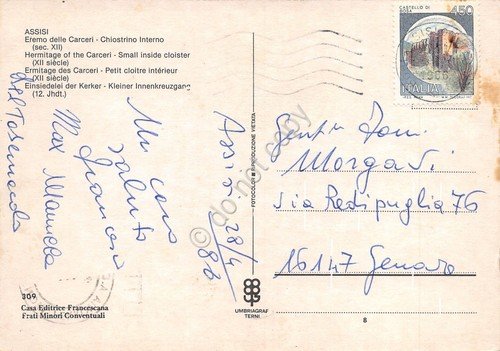 ASSISI
Eremo delle Carceri - Chiostrino Interno
(sec. XII)
Hermitage of the Carceri - Small inside cloister
(XII siècle)
Ermitage des Carceri - Petit cloître intérieur
(XII siècle)
Einsiedelei der Kerker - Kleiner Innenkreuzgang
(12. Jhdt.)
CASTELLO DI
450
ITALIA
Assisi 28/4
82
Un caro
saluto
Max
Gent. Fam.
Morga Si
Via Redipuglia 76
16147 Genova
FOTOCOLOR RIPRODUZIONE VIETATA
do not copy
309
Casa Editrice Francescana
Frati Minori Conventuali
UMBRIAGRAF
TERNI
8